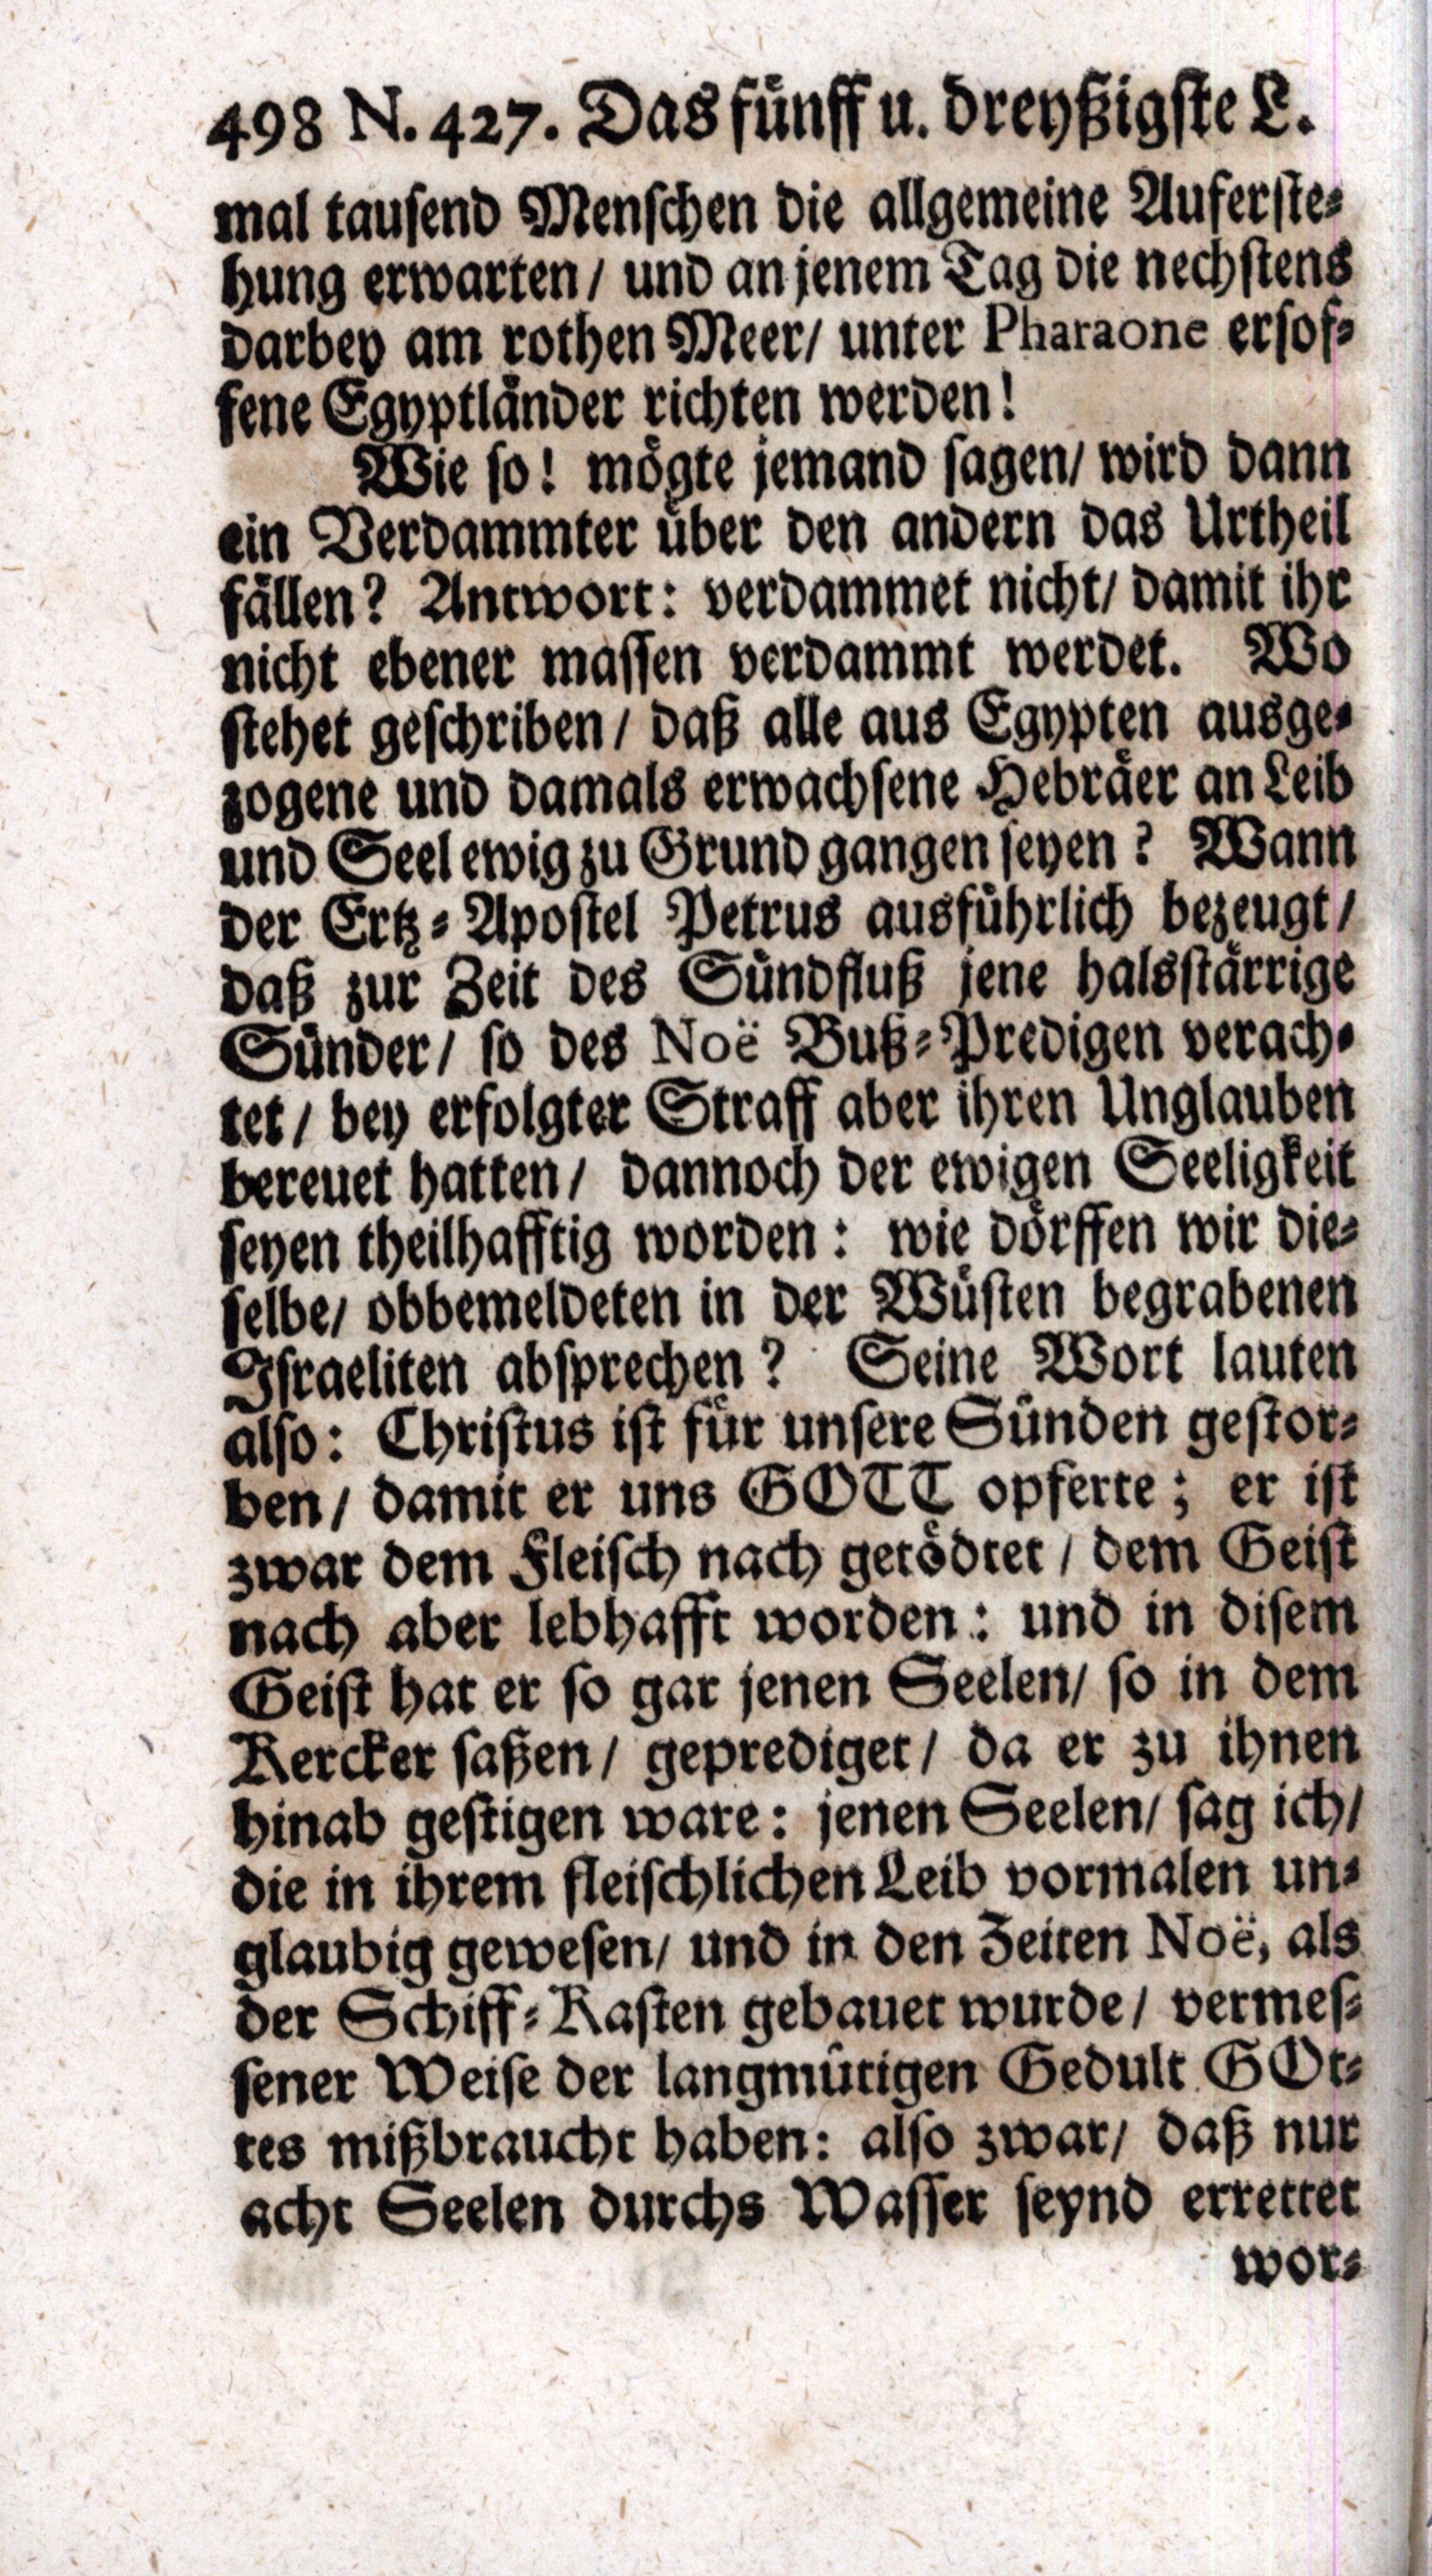 498 N. 427. Das fünff u. dreyßigste L.
mal tausend Menschen die allgemeine Auferste-
hung erwarten / und an jenem Tag die nechstens
darbey am rothen Meer/ unter Pharaone ersof-
fene Egyptländer richten werden!
Wie so! mögte jemand sagen/ wird dann
ein Verdammter über den andern das Urtheil
fällen? Antwort: verdammet nicht/ damit ihr
nicht ebener massen verdammt werdet. Wo
stehet geschriben / daß alle aus Egypten ausge-
zogene und damals erwachsene Hebräer an Leib
und Seel ewig zu Grund gangen seyen? Wann
der Ertz-Apostel Petrus ausführlich bezeugt /
daß zur Zeit des Sündfluß jene halsstärrige
Sünder / so des Noë Buß-Predigen verach-
tet / bey erfolgter Straff aber ihren Unglauben
bereuet hatten / dannoch der ewigen Seeligkeit
seyen theilhafftig worden: wie dörffen wir die-
selbe/ obbemeldeten in der Wüsten begrabenen
Israeliten absprechen? Seine Wort lauten
also: Christus ist für unsere Sünden gestor-
ben / damit er uns GOTT opferte; er ist
zwar dem Fleisch nach getödtet / dem Geist
nach aber lebhafft worden: und in disem
Geist hat er so gar jenen Seelen/ so in dem
Kercker saßen / geprediget / da er zu ihnen
hinab gestigen ware: jenen Seelen/ sag ich/
die in ihrem fleischlichen Leib vormalen un-
glaubig gewesen/ und in den Zeiten Noë, als
der Schiff-Kasten gebauet wurde / vermes-
sener Weise der langmütigen Gedult GOt-
tes mißbraucht haben: also zwar/ daß nur
acht Seelen durchs Wasser seynd errettet
wor-